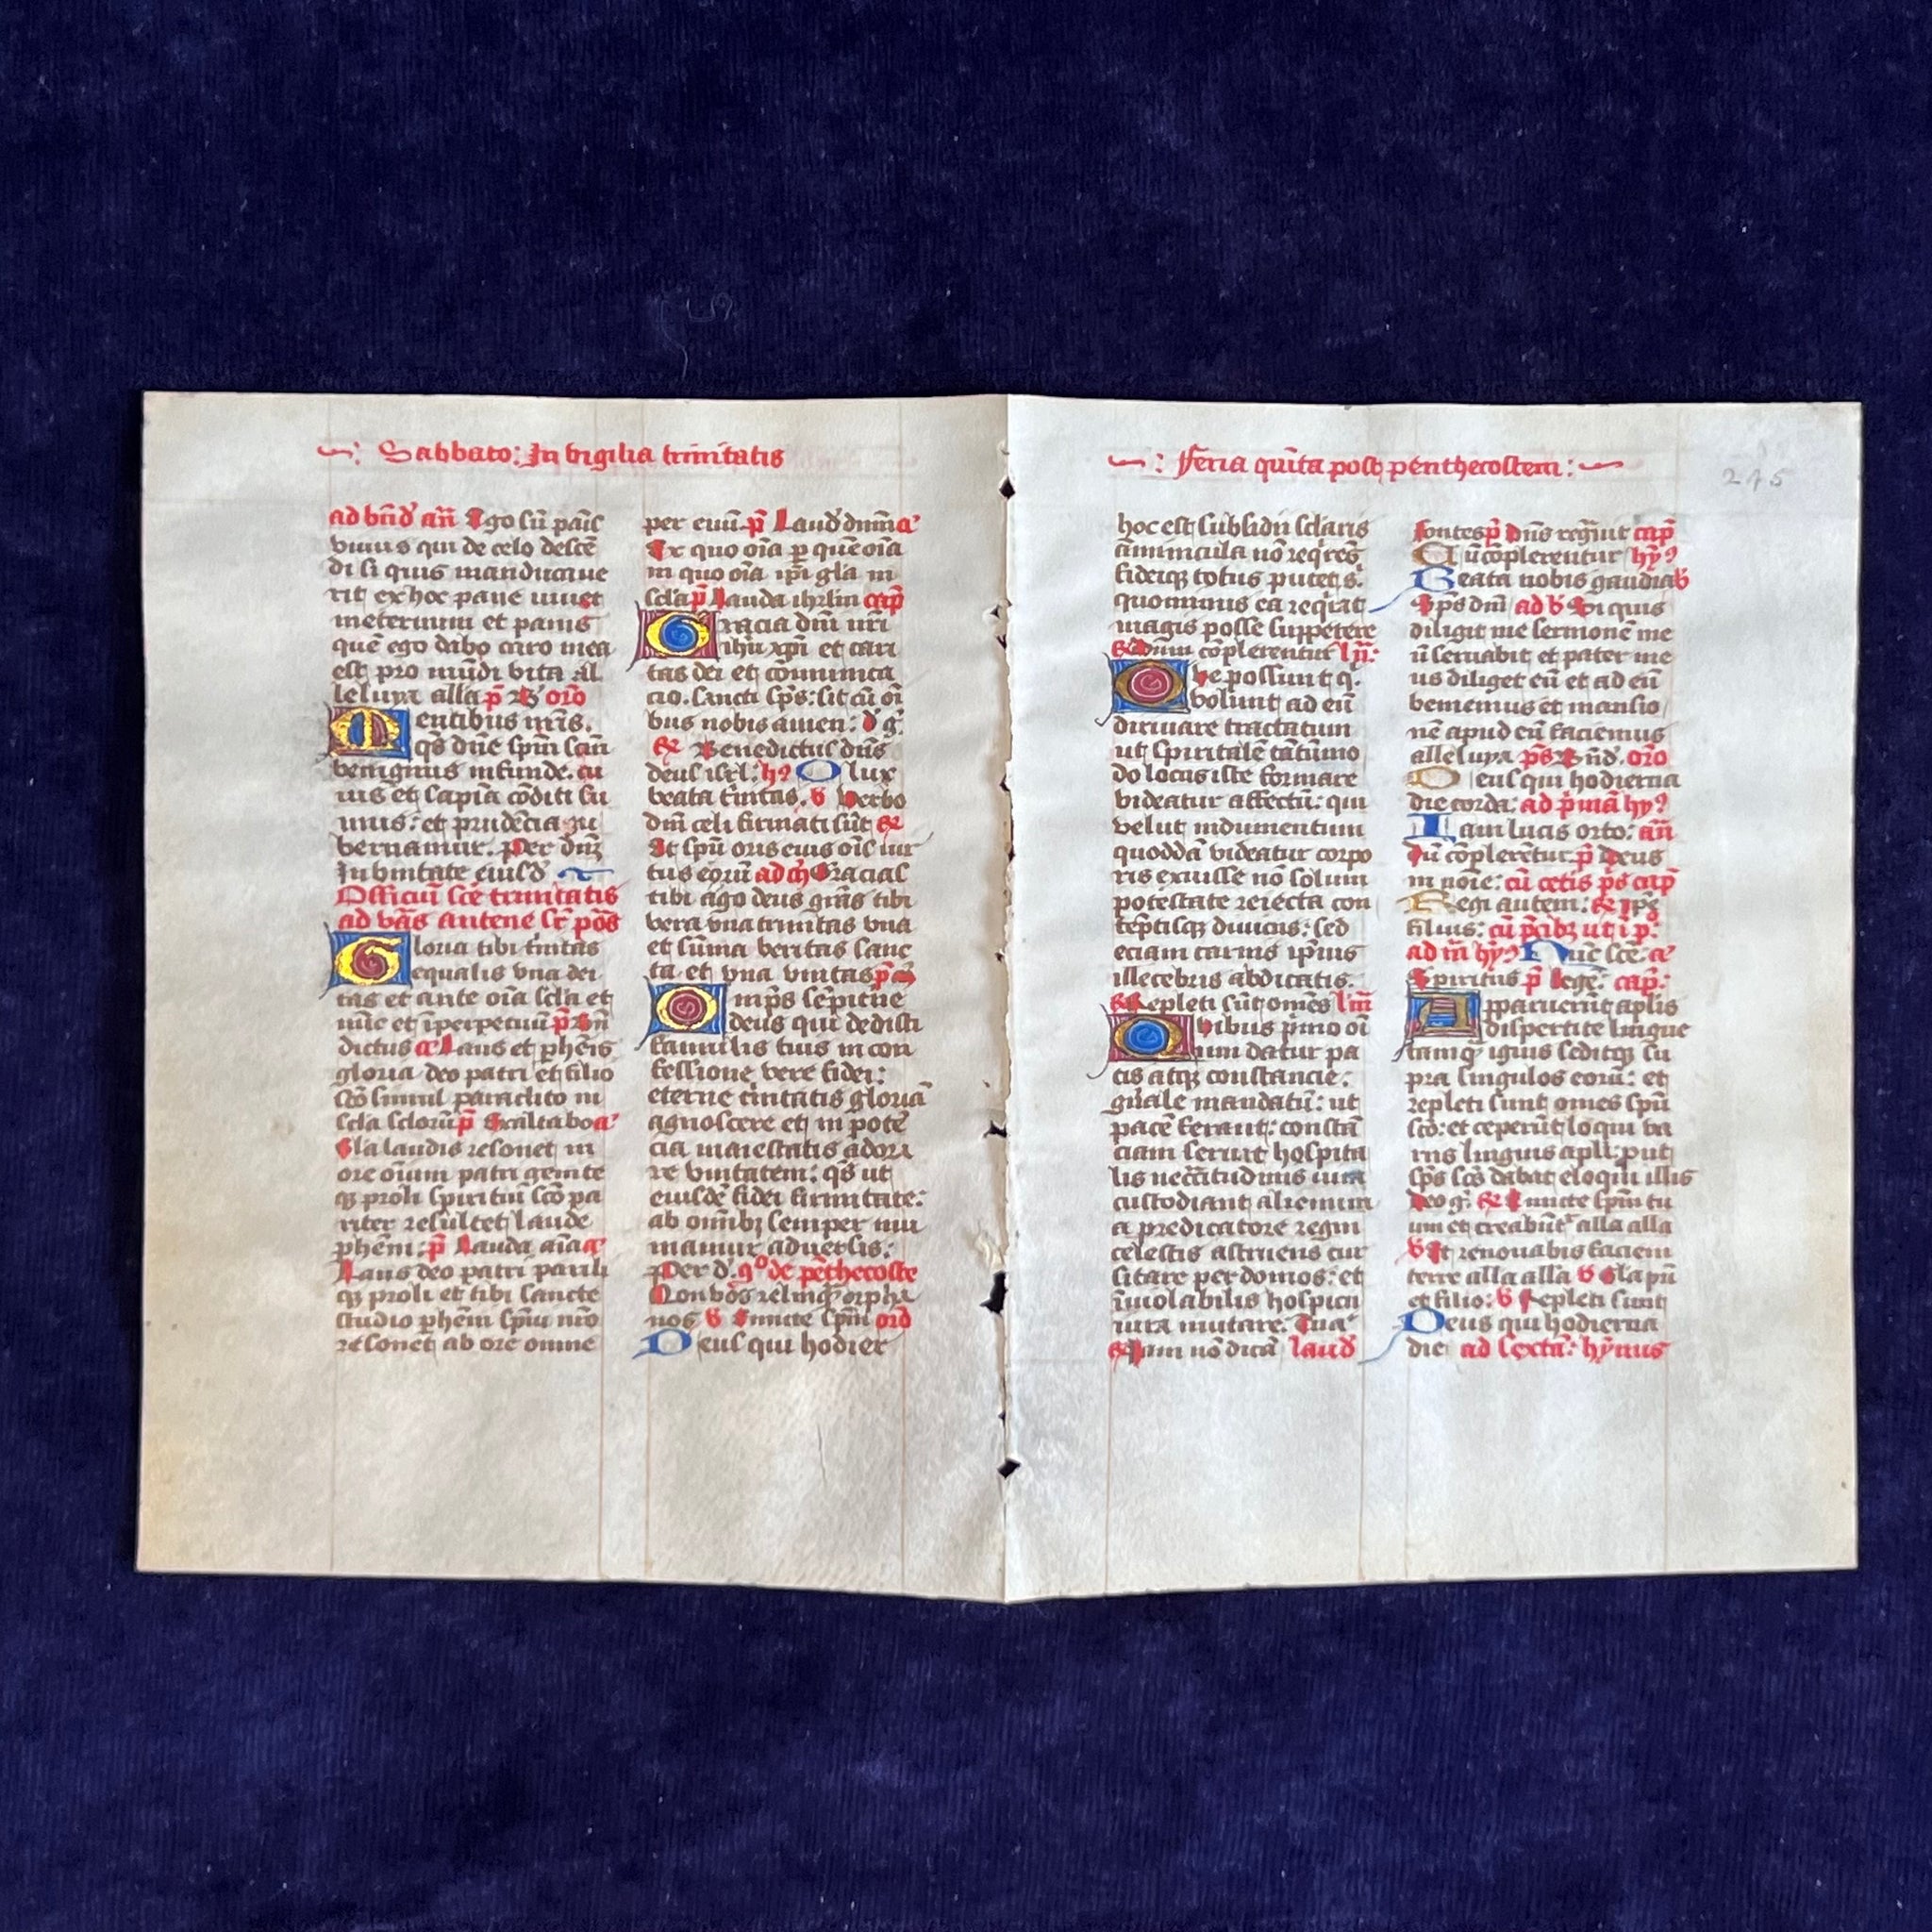 Sabbato: In vigilia trinitatis
ad bñd᷒ añ Ego sū pais
viuus qui de celo descē
di si quis manducaue
rit ex hoc pane uiuet
ineternum et panis
quē ego dabo caro mea
est pro mūdi vita al
leluya alla p̄ oro
Mentibus nr̄is.
qs̄ dn̄e spm̄ scm̄
benignus infunde. cu
ius et sapiā cōditi su
mus: et prudēcia gu
bernamur. Per dn̄
In vnitate eiusd
Officiū scē trinitatis
ad vās antene sr̄ pōs
Gloria tibi tn̄itas
equalis vna dei
tas et ante oīa scla et
nūc et īperpetuū p̄ Bn̄
dictus a Laus et phēis
gloria deo patri et filio
scō simul paraclito in
scla sclorū p̄ Exaltabo a
Gla laudis resonet in
ore oīum patri genite
q̄ proli spiritui scō pa
riter resultet laude
phēm: p̄ Lauda aīa a
Laus deo patri parili
q̄ proli et tibi sancte
studio phēm spiū nr̄o
resonet ab ore omne
per euū p̄ Laud dnm a
Ex quo oīa p quē oīa
in quo oīa ipi gla in
scla p̄ Lauda ihrlm cap̄
Gracia dm̄ nr̄i
ihu xpi et cari
tas dei et cōmunica
cio. sancti sps̄: sit cū oī
bus nobis amen: d g
Benedictus dn̄s
deus isrl: h O lux
beata tn̄itas. v Verbo
dm̄ celi firmati sūt
Et spū oris eius oīs uir
tus eorū ad Gracias
tibi ago deus grās tibi
vera vna trinitas vna
et sūma veritas sanc
ta et vna vnitas p̄
Omp̄s sēpiterne
deus qui dedisti
famulis tuis in con
fessione vere fidei:
eterne tn̄itatis gloriā
agnoscere et in potē
cia maiestatis adora
re vnitatem: qs̄ ut
eiusdē fidei firmitate:
ab omībȝ semper mu
niamur aduersis:
Per d. de pēthecoste
Non vōs relinq̄ orpha
nos v Emitte spm̄ oro
Deus qui hodier
Feria quīta post penthecostem:
245
hoc est subsidii sclaris
āminicula nō reqres
fideiqȝ totus putet s.
quominus ea reqrat
magis posse suppetere
Dum cōplerentur
Qe possunt q.
volunt ad eū
diriuare tractatum
ut spiritale tātūmo
do locus iste formare
videatur affectū: qui
velut indumentum
quoddā videatur corpo
ris exuisse nō solum
potestate reiecta con
tēptisqȝ diuicus: sed
eciam carnis ip̄ius
illecebris abdicatis.
Repleti sūt omēs
Quibus p̄mo oī
um datur pa
cis atqȝ constancie:
gn̄ale mandatū: ut
pacē ferant: constā
ciam seruit hospita
lis necc̄itudinis iura
custodiant alienum
a predicatore regni
celestis astruens cur
sitare per domos: et
īuiolabilis hospicii
iura mutare. Tua
Iam nō dicā laud
fontes p̄ Dn̄s regn̄uit cap̄
Cū cōplerentur hy
Beata nobis gaudia v
Sps̄ dm̄ ad b Si quis
diligit me sermonē me
ū seruabit et pater me
us diliget eū et ad eū
beniemus et mansio
nē apud eū faciemus
alleluya ps̄ Bn̄d. oro
Deus qui hodierna
die corda: ad p̄mā hy
Iam lucis orto: añ
Dū cōplerētur p̄ Deus
in noīe: cū cetis ps̄ cap̄
Regi autem: ipē
filius: cū p̄cibȝ ut i p.
ad hy Nūc scē a
Spiritus p̄ Lege: cap̄:
Apparuerūt aplis
dispertite lingue
tamq̄ ignis seditqȝ su
pra singulos eorū: et
repleti sunt omēs spū
scō: et ceperūt loqui va
riis linguis apli: put
sps̄ scs̄ dabat eloqui illis
Deo g Emitte spm̄ tu
um et creabūt alla alla
v Et renouabis faciem
terre alla alla v Gla p̄ri
et filio: v Repleti sunt
Deus qui hodierna
die ad sextā: hymus